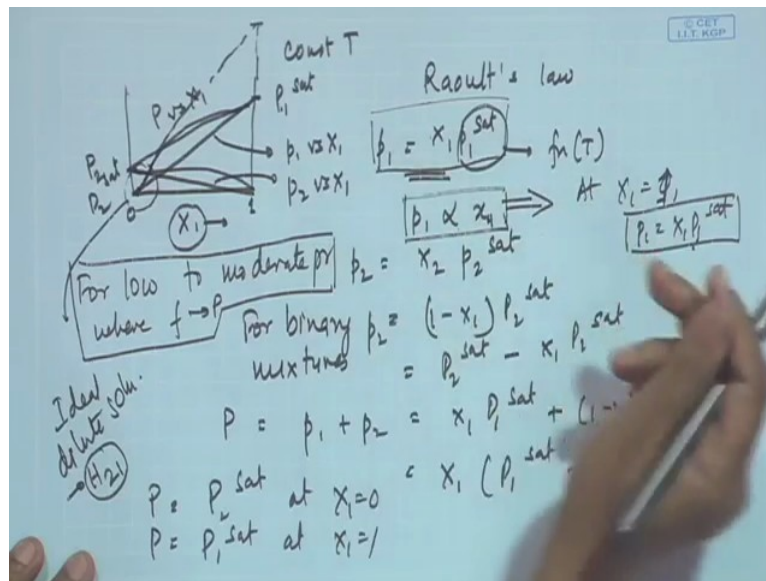 © CET
I.I.T. KGP
T
const T
P vs X₁
P₁ sat
p₁ vs X₁
p₂ vs X₁
P₂sat
P₂
0
1
X₁ →
Raoult's law
p₁ = x₁ p₁ sat → fn(T)
p₁ ∝ x₁ ⇒ At x₁ = 1
p₁ = x₁ p₁ sat
p₂ = x₂ p₂ sat
For low to moderate pr
where f → P
For binary mixtures
p₂ = (1-x₁) P₂ sat
= P₂ sat - x₁ P₂ sat
P = p₁ + p₂ = x₁ P₁ sat + (1-
= x₁ (P₁ sat
Ideal
dilute soln.
→ H₂₁
P = P₂ sat at x₁=0
P = P₁ sat at x₁=1